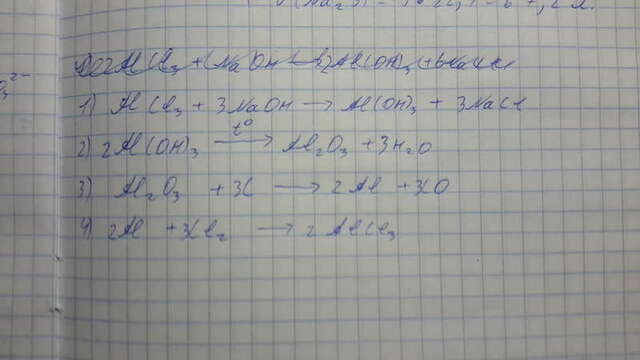 2AlCl₃ + 6NaOH → 2Al(OH)₃ + 6NaCl
1) AlCl₃ + 3NaOH → Al(OH)₃ + 3NaCl
2) 2Al(OH)₃ t⁰→ Al₂O₃ + 3H₂O
3) Al₂O₃ + 3C → 2Al + 3CO
4) 2Al + 3Cl₂ → 2AlCl₃